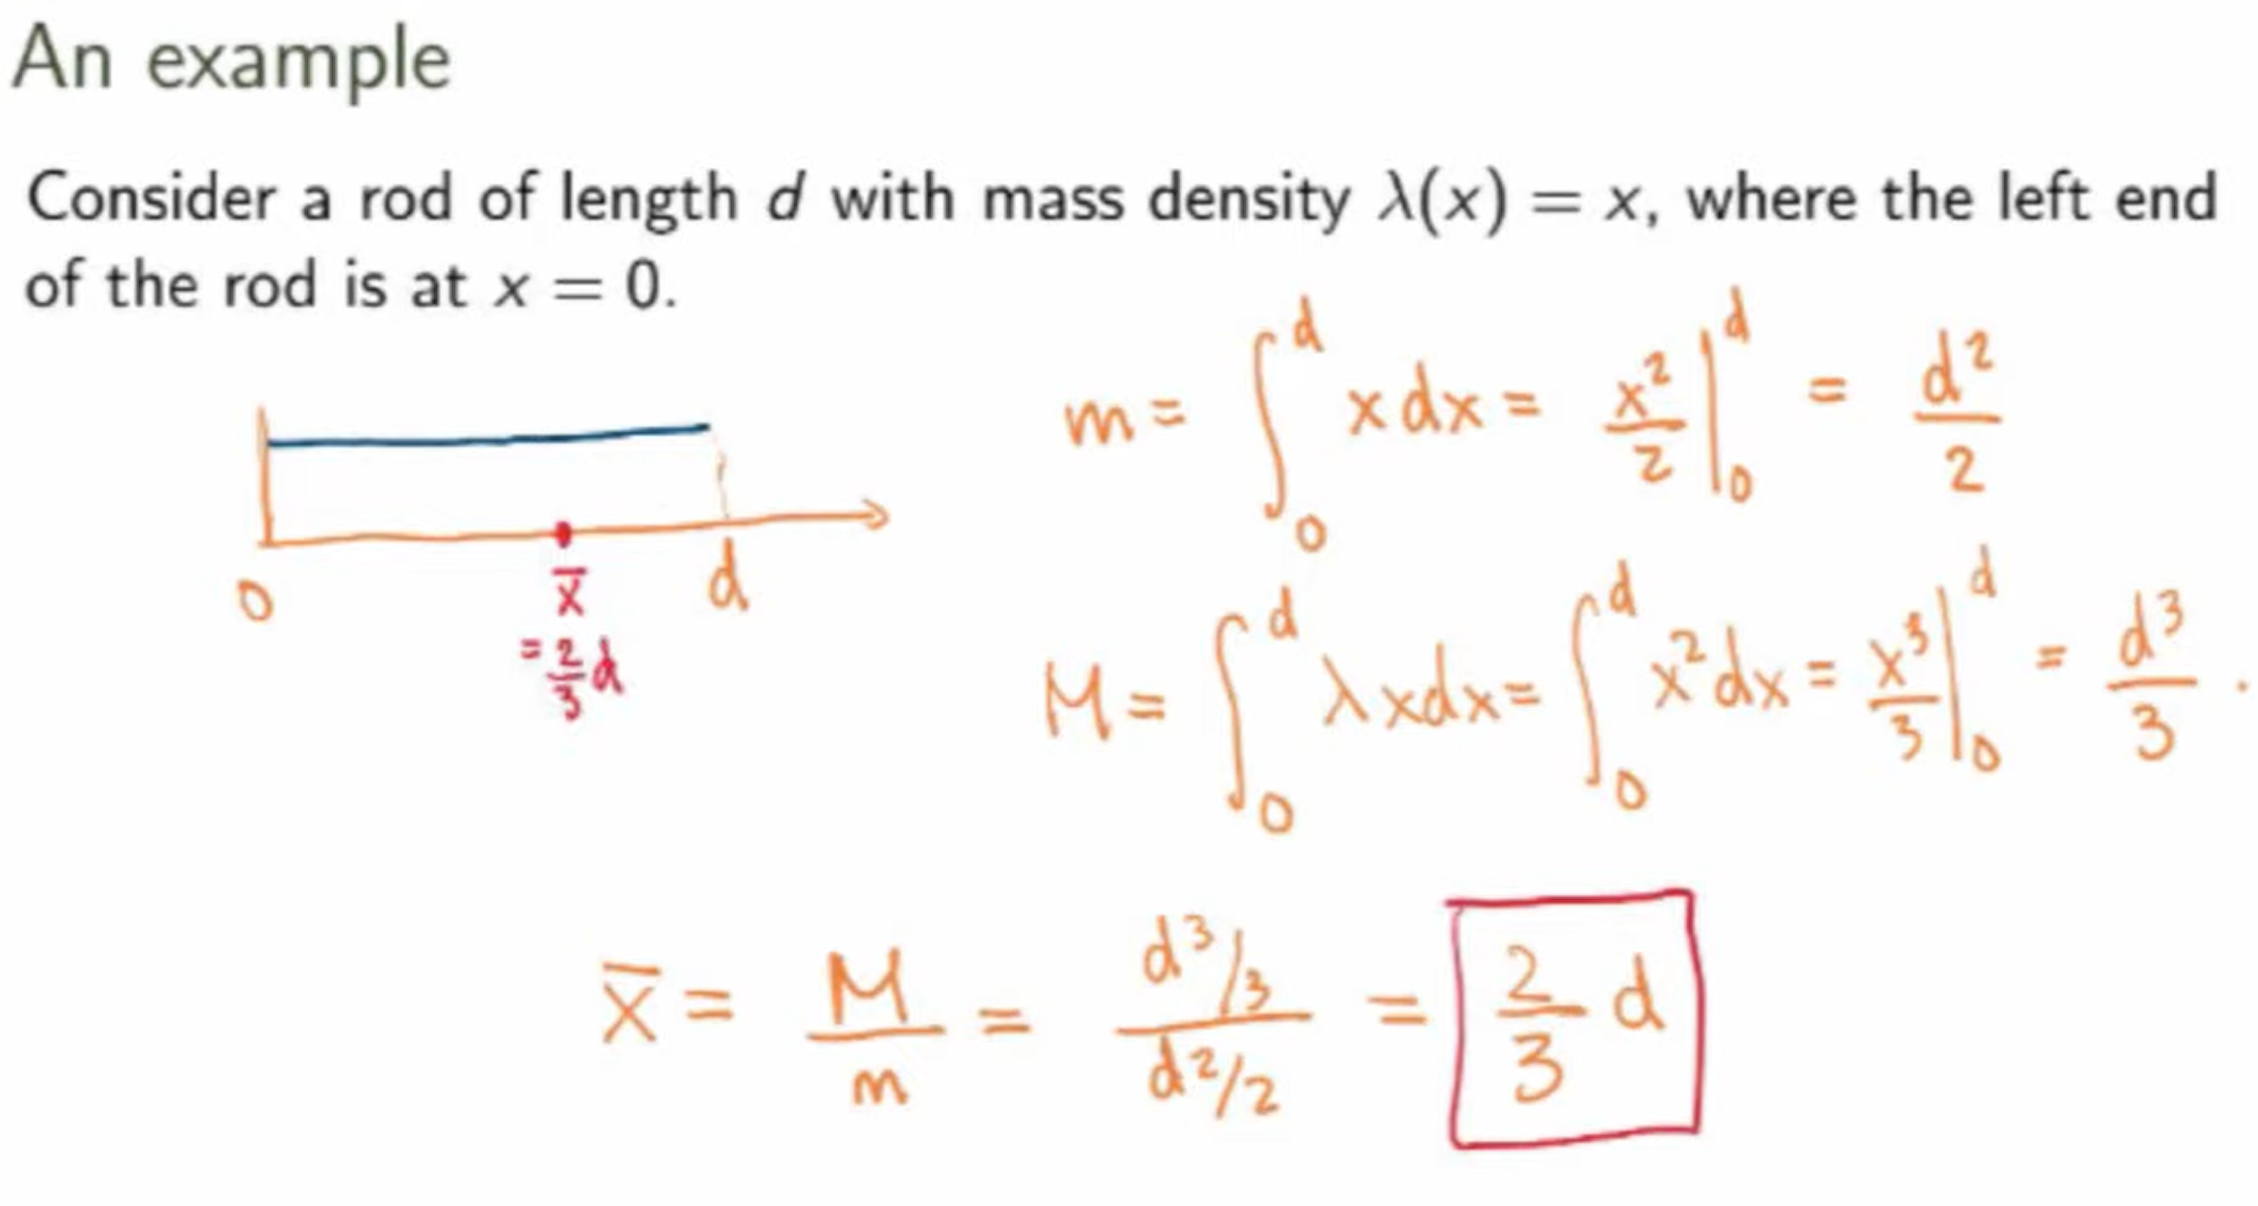 An example
Consider a rod of length d with mass density λ(x) = x, where the left end
of the rod is at x = 0.
m = ∫₀ᵈ x dx = x²/2 |₀ᵈ = d²/2
0 x̄ d
= 2/3 d
M = ∫₀ᵈ λxdx = ∫₀ᵈ x²dx = x³/3 |₀ᵈ = d³/3 .
x̄ = M/m = (d³/3)/(d²/2) = 2/3 d